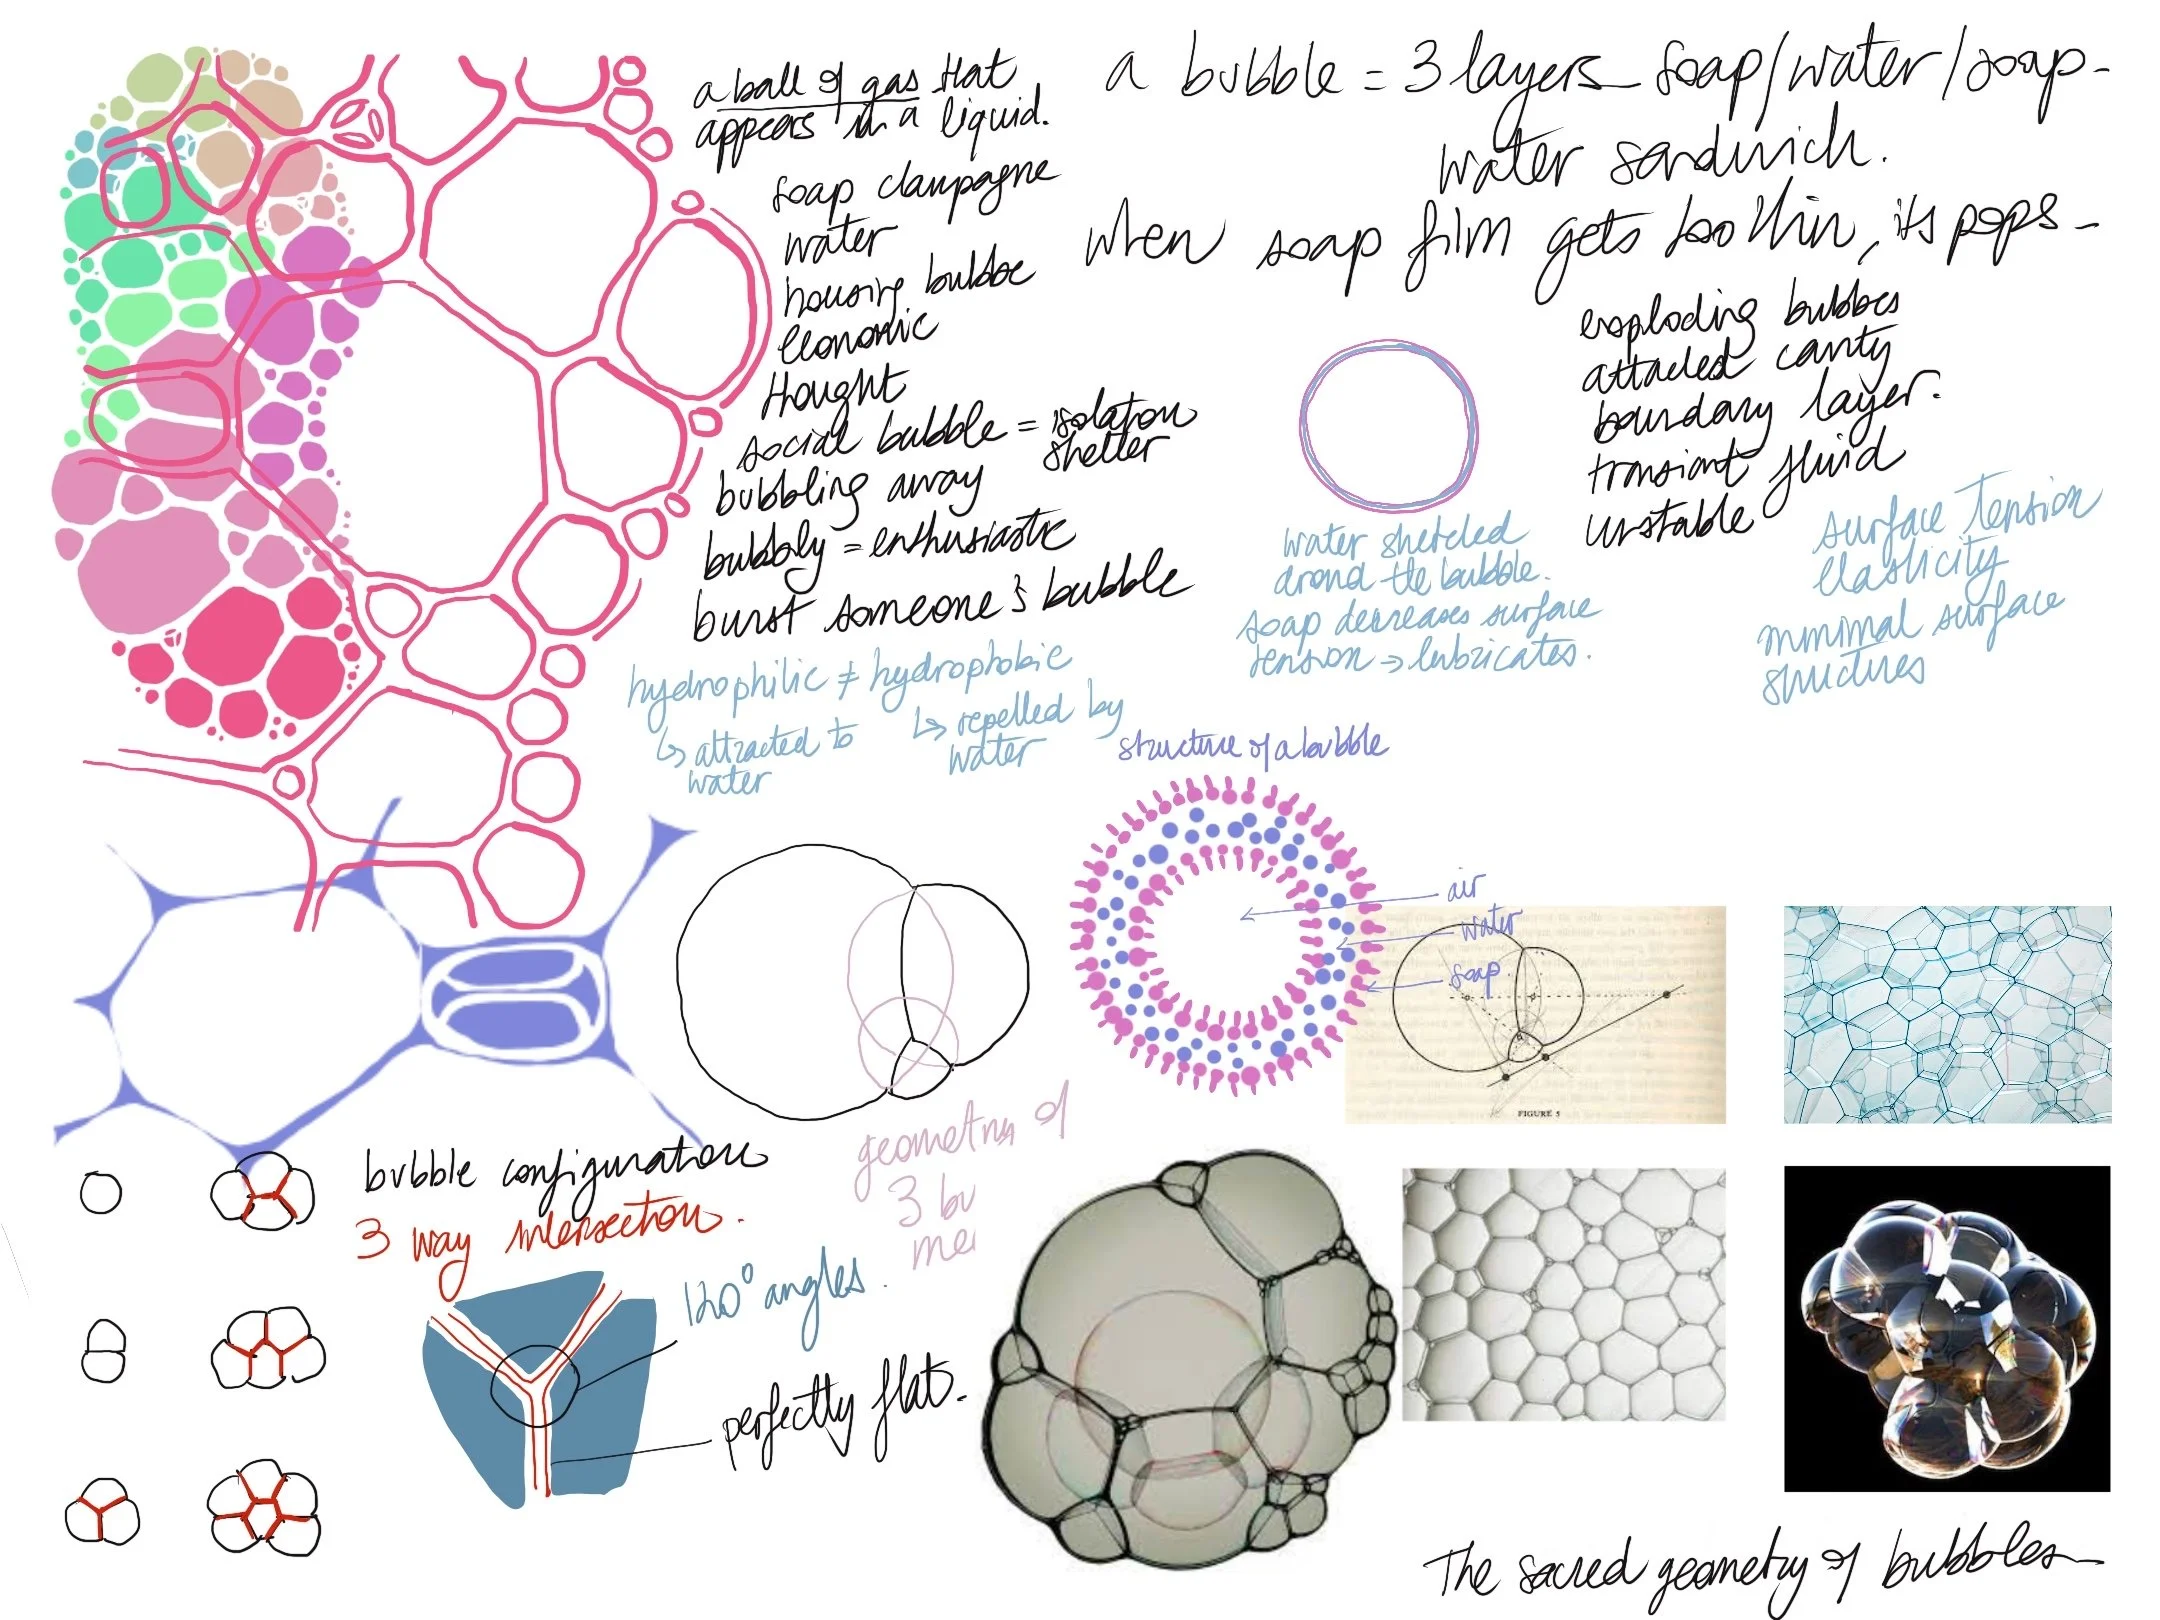 a ball of gas that
appears in a liquid.
soap champagne
water
housing bubble
economic
thought
social bubble = isolation
shelter
bubbling away
bubbly = enthusiastic
burst someone's bubble
a bubble = 3 layers soap/water/soap-
water sandwich.
when soap film gets too thin, its pops-
exploding bubbles
attached cavity
boundary layer.
transiant fluid
unstable
water sheteled
around the bubble.
soap decreases surface
tension → lubricates.
surface tension
elasticity
minimal surface
structures
hydrophilic ≠ hydrophobic
↳ attracted to
water
↳ repelled by
water
structure of a bubble
air
water
soap.
FIGURE 5
geometry of
3 bu
me
bubble configuration
3 way intersection.
120° angles.
perfectly flat.
The sacred geometry of bubbles